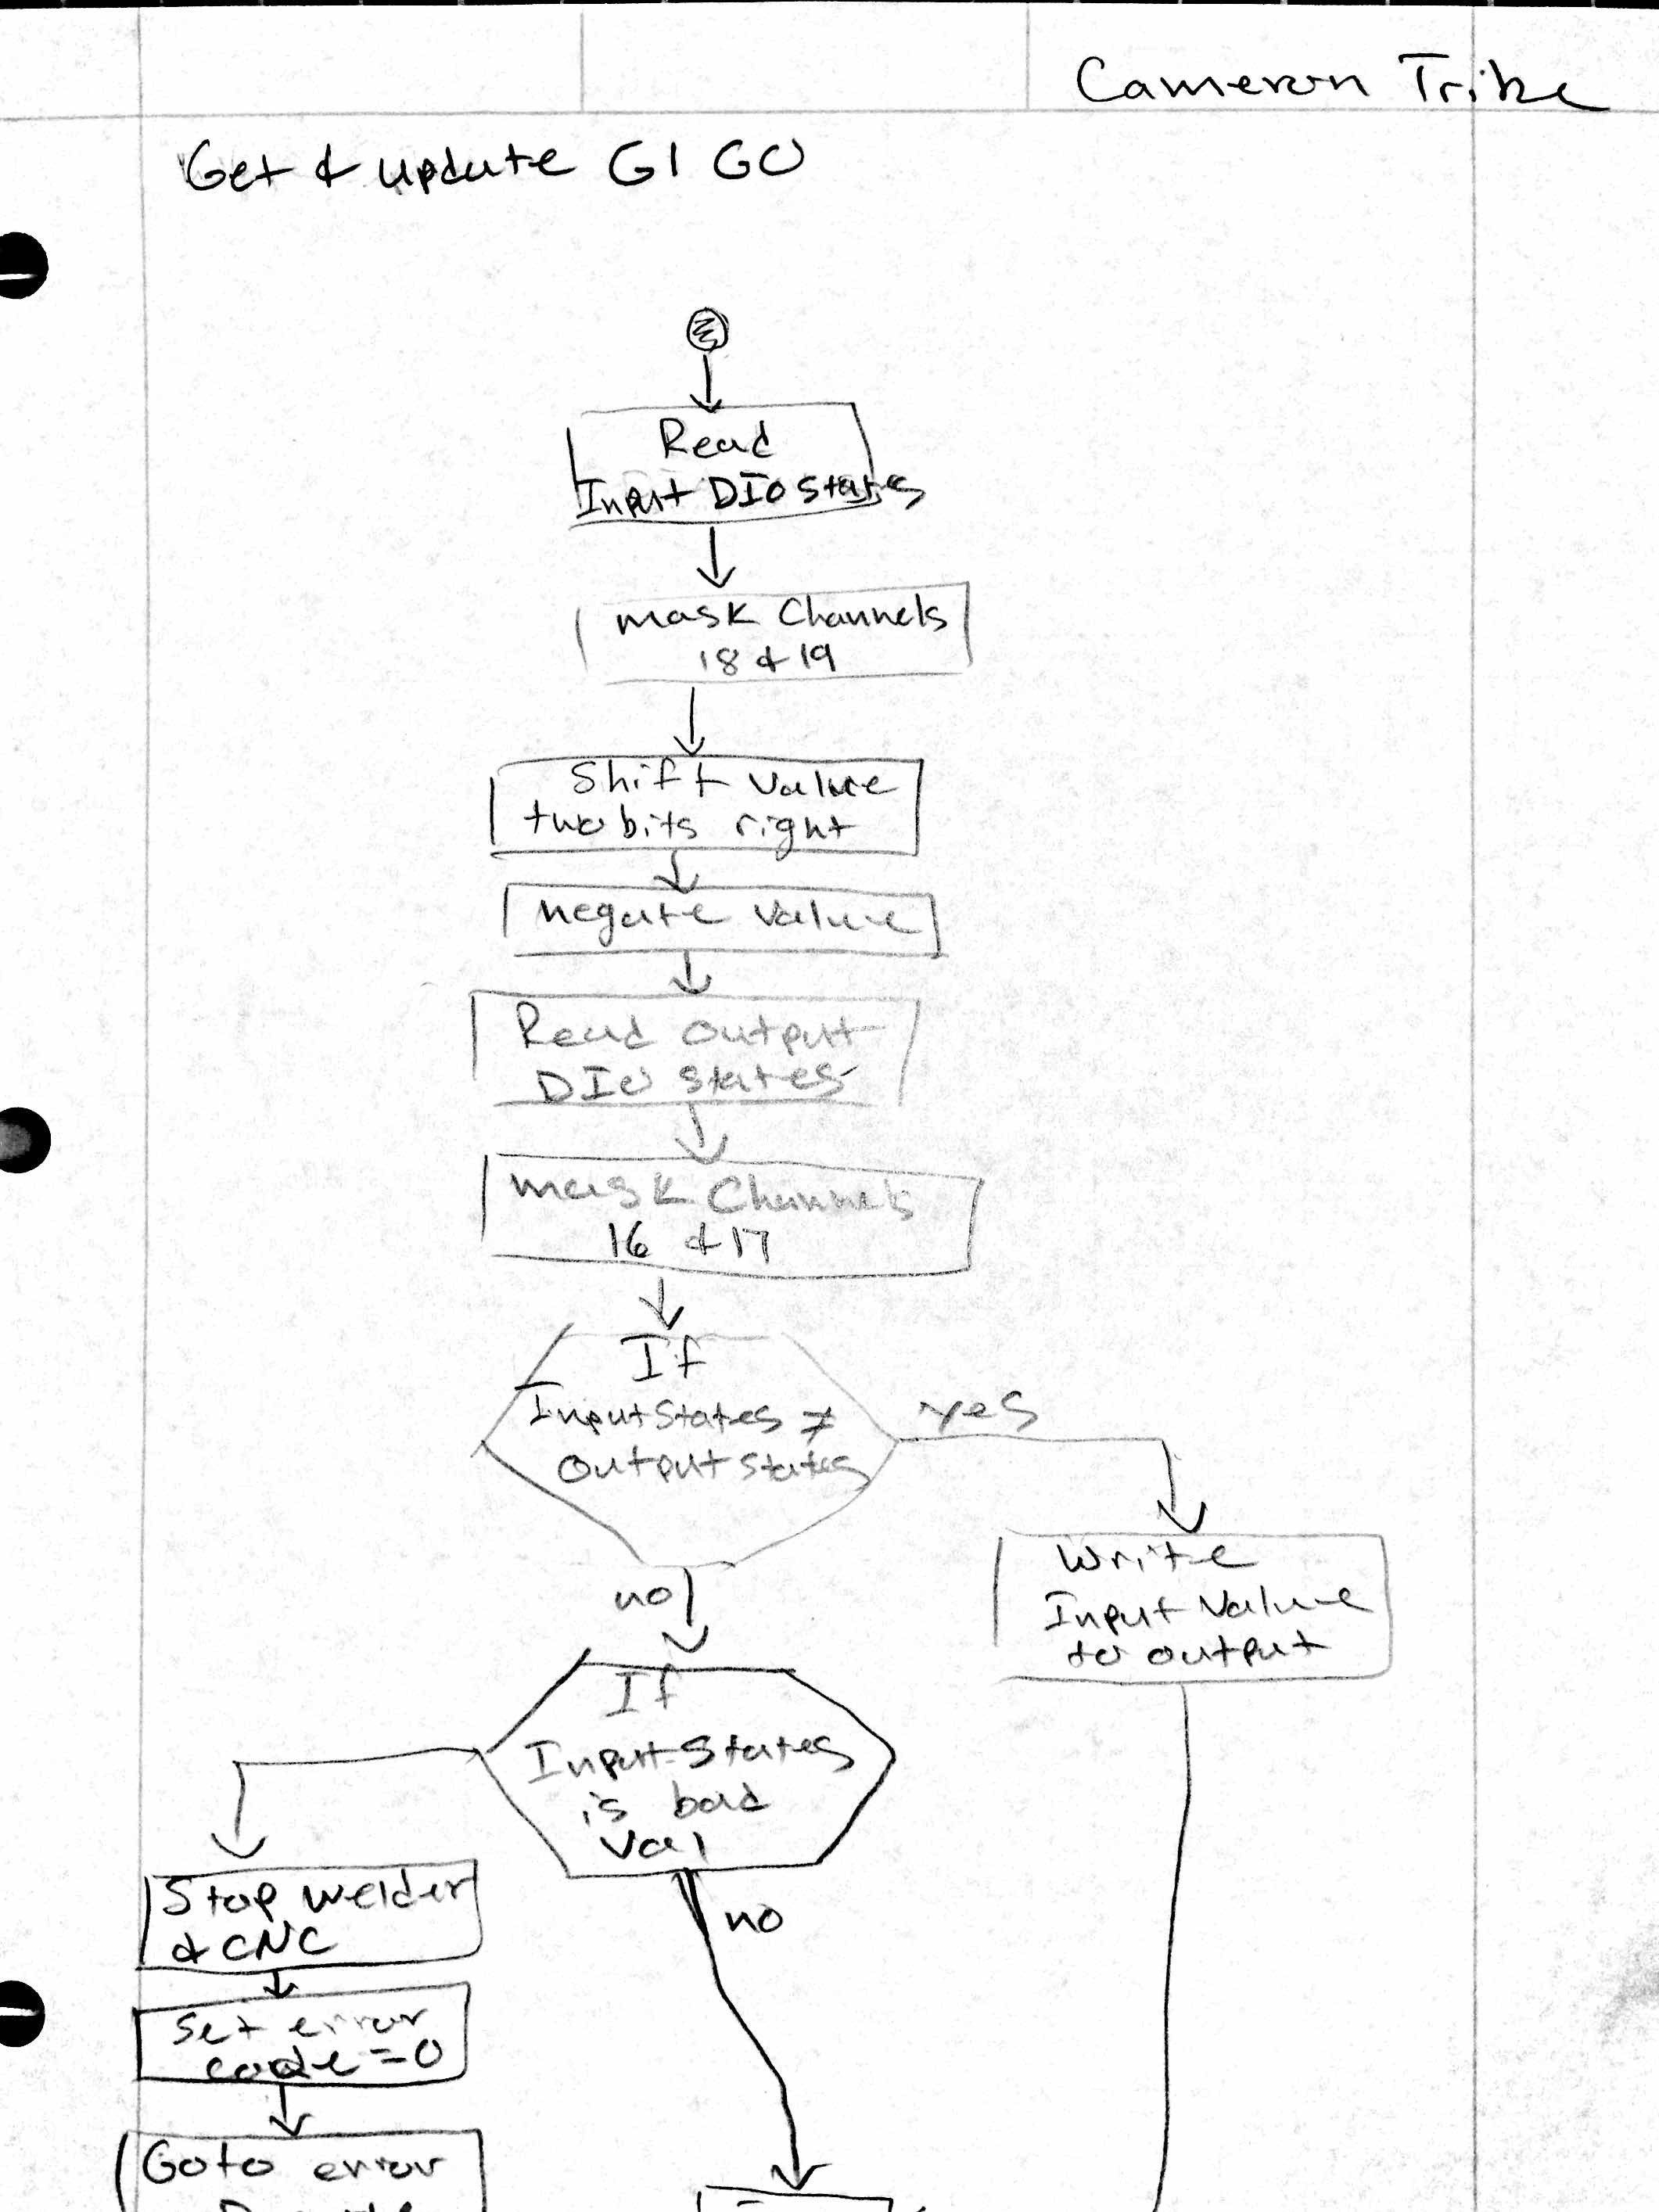 Cameron Trike
Get & update GI GO
Read
Input DIO States
mask Channels
18 & 19
Shift value
two bits right
negate value
Read output
DIO states
mask Channels
16 & 17
If
Input States ≠
Output States
yes
Write
Input Value
to output
no
If
Input States
is bad
Val
no
Stop welder
& CNC
Set error
code = 0
Goto error